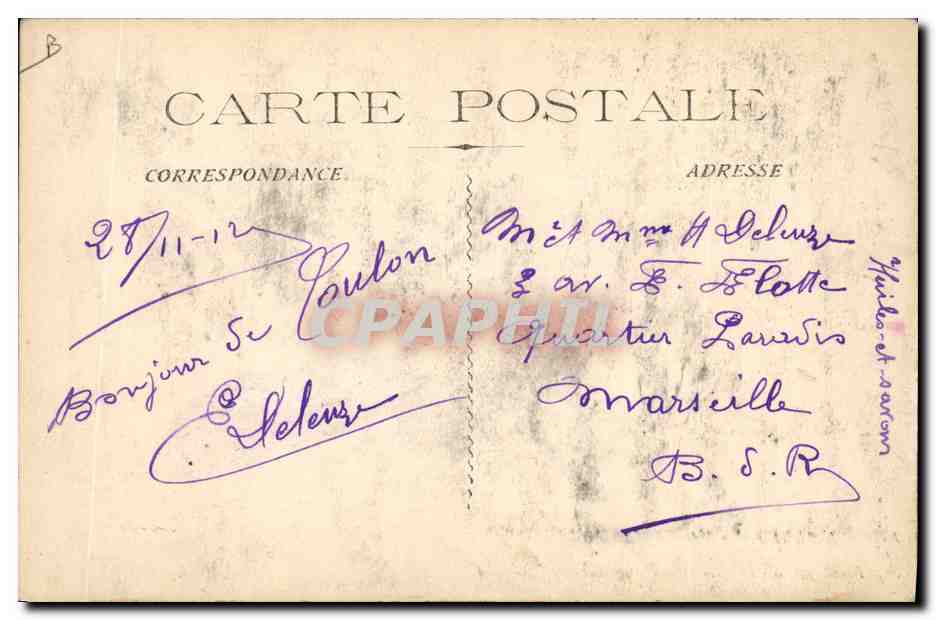 B
CARTE POSTALE
CORRESPONDANCE
ADRESSE
28/11-12
Bonjour de Toulon
E Deleuze
M et Mme H Deleuze
2 av. F. Flotte
Quartier Paradis
Marseille
B. d. R
Huiles et savons
CPAPHIL